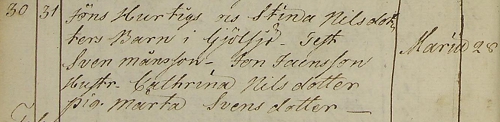 30 31 Jöns Hurtigs o s Stina Nils dot-
ters Barn i Gjölsjö - Test
Sven månsson - Jon Svensson Maria 28
Hustr. Cathrina Nils dotter
pig. märta Svens dotter -